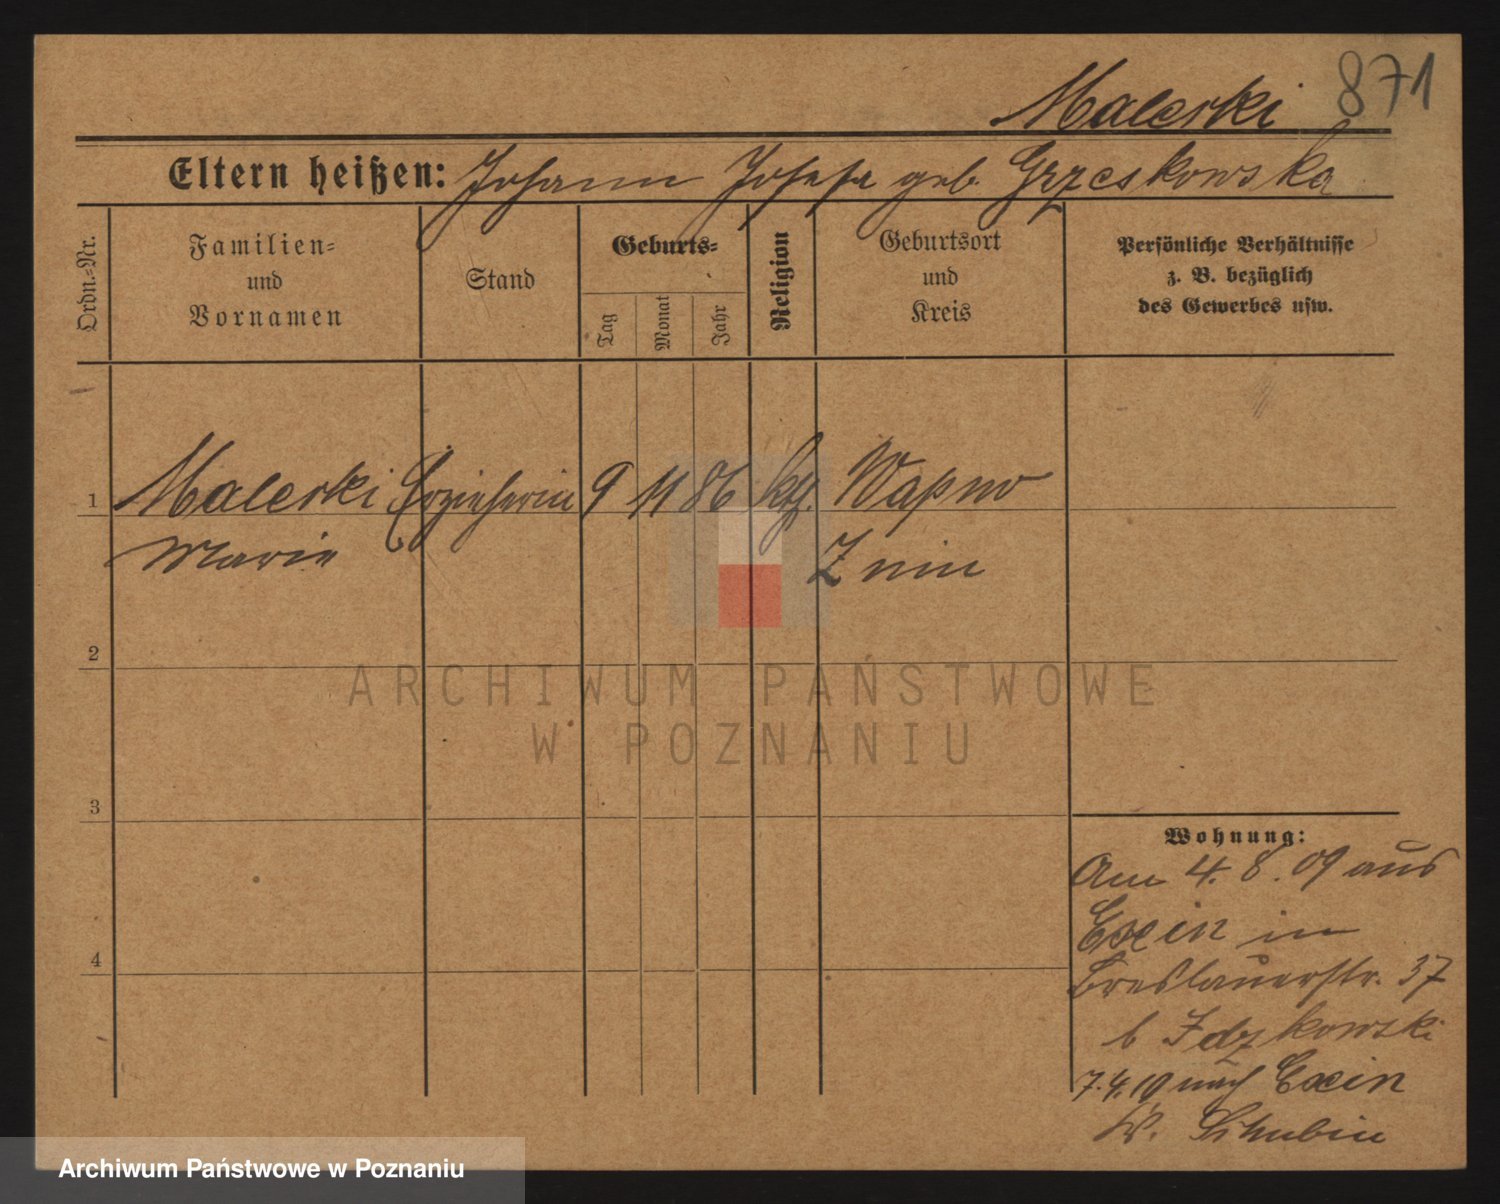 871
Malerski
Eltern heißen: Johann Josefa geb. Grzeskowska
Ordn.-Nr.
Familien-
und
Vornamen
Stand
Geburts-
Tag
Monat
Jahr
Religion
Geburtsort
und
Kreis
Persönliche Verhältnisse
z. B. bezüglich
des Gewerbes usw.
1 Malerski Erzieherin 9 11 86 kth. Wapno
Marie Znin
2
3
4
Wohnung:
Am 4. 8. 09 aus
Exin in
Breslauerstr. 37
b Idzkowski
7.4.10 nach Exin
Kr. Schubin
ARCHIWUM PAŃSTWOWE
W POZNANIU
Archiwum Państwowe w Poznaniu